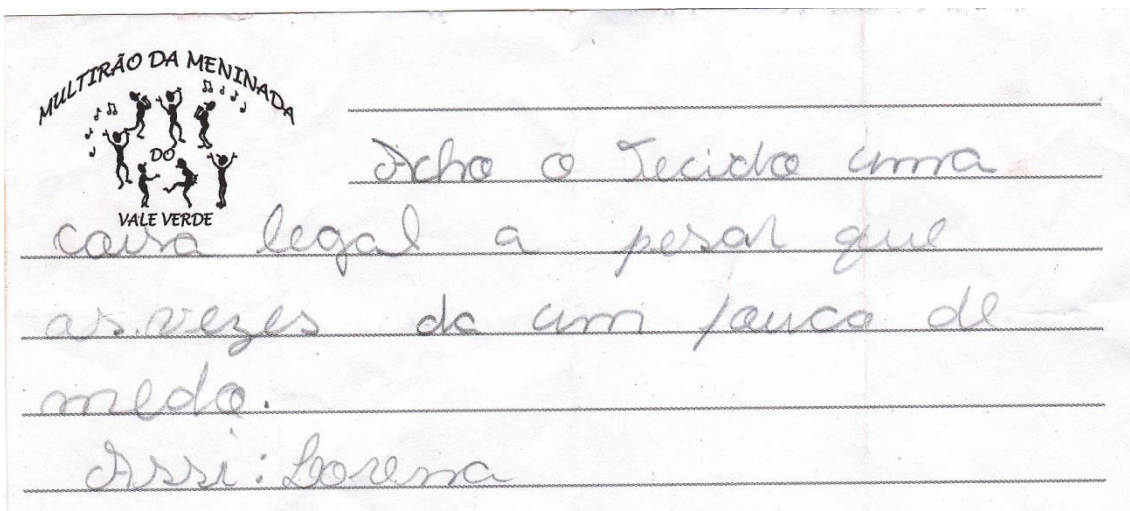 MULTIRÃO DA MENINADA
DO
VALE VERDE
Acho o Tecido uma
coisa legal a pesar que
as vezes da um pouco de
medo.
Assi: Lorena